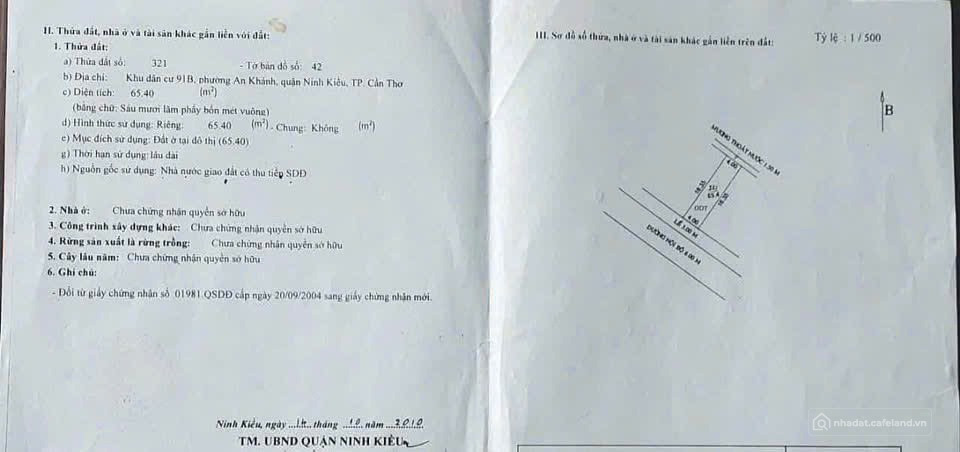 II. Thửa đất, nhà ở và tài sản khác gắn liền với đất:
1. Thửa đất:
a) Thửa đất số: 321 - Tờ bản đồ số: 42
b) Địa chỉ: Khu dân cư 91B, phường An Khánh, quận Ninh Kiều, TP. Cần Thơ
c) Diện tích: 65.40 (m²)
(bằng chữ: Sáu mươi lăm phẩy bốn mét vuông)
d) Hình thức sử dụng: Riêng: 65.40 (m²) - Chung: Không (m²)
e) Mục đích sử dụng: Đất ở tại đô thị (65.40)
g) Thời hạn sử dụng: lâu dài
h) Nguồn gốc sử dụng: Nhà nước giao đất có thu tiền SDĐ
2. Nhà ở: Chưa chứng nhận quyền sở hữu
3. Công trình xây dựng khác: Chưa chứng nhận quyền sở hữu
4. Rừng sản xuất là rừng trồng: Chưa chứng nhận quyền sở hữu
5. Cây lâu năm: Chưa chứng nhận quyền sở hữu
6. Ghi chú:
- Đổi từ giấy chứng nhận số 01981.QSDĐ cấp ngày 20/09/2004 sang giấy chứng nhận mới.
Ninh Kiều, ngày ...14... tháng ...10... năm ...2010...
TM. UBND QUẬN NINH KIỀU
III. Sơ đồ số thửa, nhà ở và tài sản khác gắn liền trên đất:
Tỷ lệ : 1 / 500
B
MƯƠNG THOÁT NƯỚC 1.50 M
4.00
16.35
321
65.4
16.35
ODT
4.00
LỀ 3.00 M
ĐƯỜNG NỘI BỘ 6.00 M
nhadat.cafeland.vn